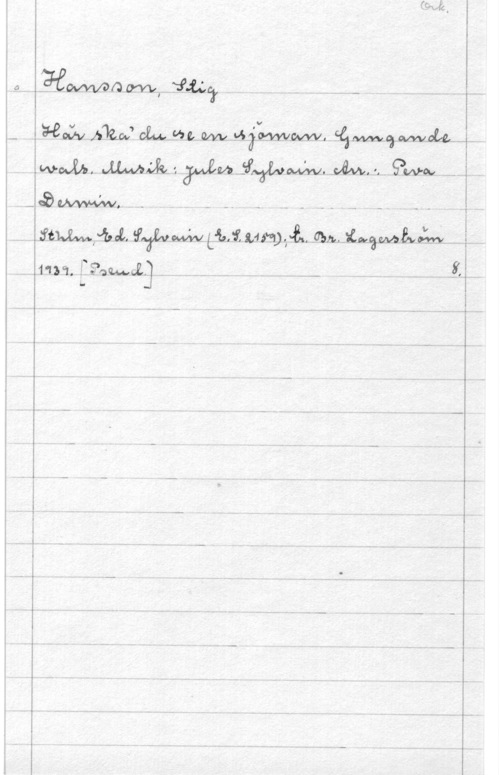 Ork.
Hansson, Stig
Här ska' du se en sjöman. Gungande
vals. Musik: Jules Sylvain. Arr.: Peva
Derwin.
Sthlm, Ed. Sylvain (E.S. 2159); tr. Br. Lagerström
1939. [Pseud.] 8.